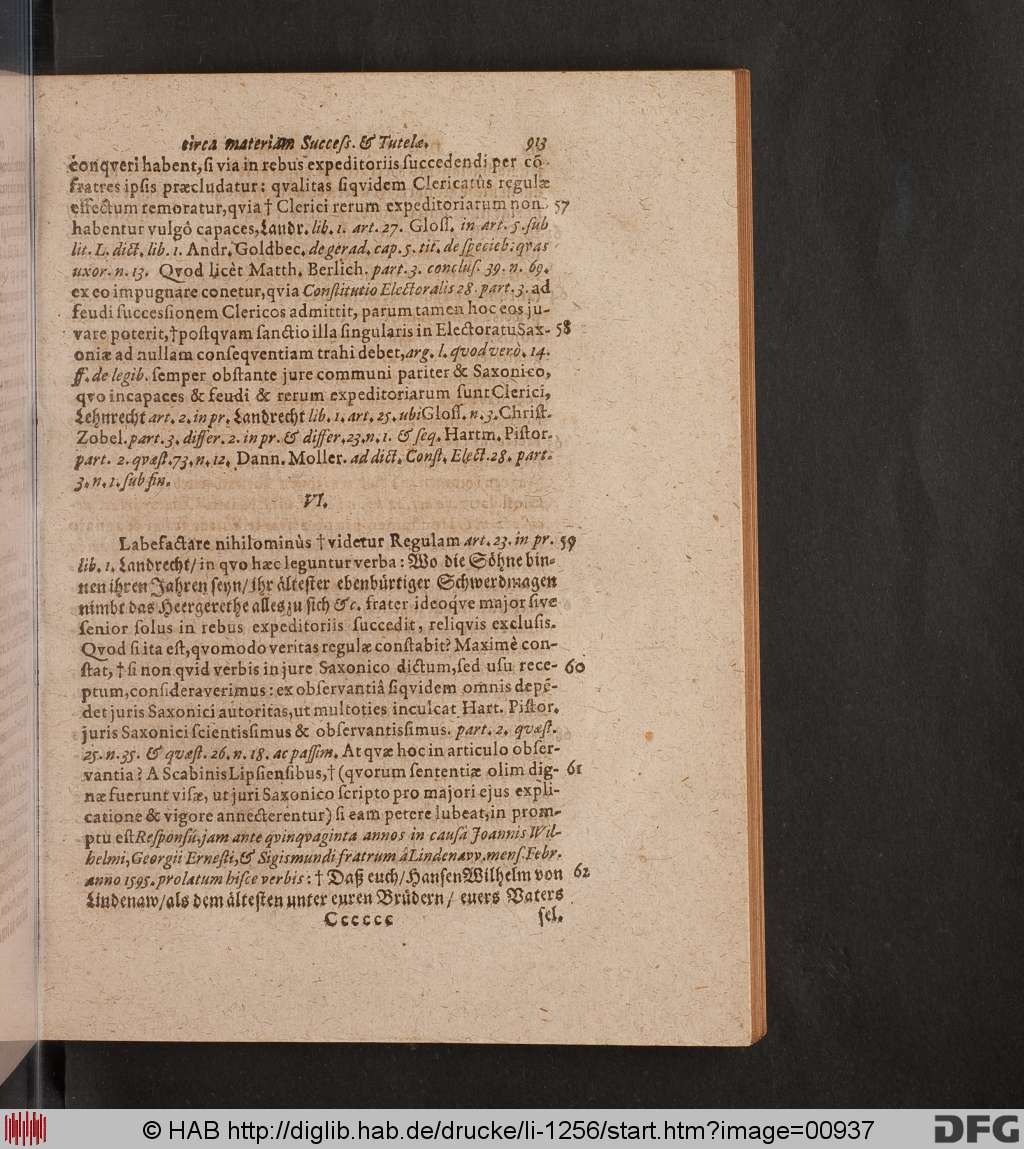 circa materiam Succeſs. & Tutelæ. 913
conqveri habent, ſi via in rebus expeditoriis ſuccedendi per cō-
fratres ipſis præcludatur: qvalitas ſiqvidem Clericatûs regulæ
effectum remoratur, qvia † Clerici rerum expeditoriarum non 57
habentur vulgô capaces, Landr. lib. 1. art. 27. Gloſſ. in art. 5. ſub
lit. L. dict. lib. 1. Andr. Goldbec. de gerad. cap. 5. tit. de ſpecieb: qvas
uxor. n. 13. Qvod licèt Matth. Berlich. part. 3. concluſ. 39. n. 69.
ex eo impugnare conetur, qvia Conſtitutio Electoralis 28. part. 3. ad
feudi ſucceſſionem Clericos admittit, parum tamen hoc eos ju-
vare poterit, † poſtqvam ſanctio illa ſingularis in Electoratu Sax- 58
oniæ ad nullam conſeqventiam trahi debet, arg. l. qvod verò. 14.
ff. de legib. ſemper obſtante jure communi pariter & Saxonico,
qvo incapaces & feudi & rerum expeditoriarum ſunt Clerici,
Lehnrecht art. 2. in pr. Landrecht lib. 1. art. 25. ubi Gloſſ. n. 3. Chriſt.
Zobel. part. 3. differ. 2. in pr. & differ. 23. n. 1. & ſeq. Hartm. Piſtor.
part. 2. qvæſt. 73. n. 12. Dann. Moller. ad dict. Conſt. Elect. 28. part.
3. n. 1. ſub fin.
VI.
Labefactare nihilominùs † videtur Regulam art. 23. in pr. 59
lib. 1. Landrecht / in qvo hæc leguntur verba: Wo die Söhne bin-
nen ihren Jahren ſeyn / ihr älteſter ebenbürtiger Schwerdmagen
nimbt das Heergerethe alles zu ſich &c. frater ideoqve major ſive
ſenior ſolus in rebus expeditoriis ſuccedit, reliqvis excluſis.
Qvod ſi ita eſt, qvomodo veritas regulæ conſtabit? Maximè con-
ſtat, † ſi non qvid verbis in jure Saxonico dictum, ſed uſu rece- 60
ptum, conſideraverimus: ex obſervantiâ ſiqvidem omnis depē-
det juris Saxonici autoritas, ut multoties inculcat Hart. Piſtor.
juris Saxonici ſcientiſſimus & obſervantiſſimus. part. 2. qvæſt.
25. n. 35. & qvæſt. 26. n. 18. ac paſſim. At qvæ hoc in articulo obſer-
vantia? A Scabinis Lipſienſibus, † (qvorum ſententiæ olim dig- 61
næ fuerunt viſæ, ut juri Saxonico ſcripto pro majori ejus expli-
catione & vigore annecterentur) ſi eam petere lubeat, in prom-
ptu eſt Reſponſū, jam ante qvinqvaginta annos in cauſâ Joannis Wil-
helmi, Georgii Erneſti, & Sigismundi fratrum à Lindenavv. menſ. Febr.
anno 1595. prolatum hiſce verbis: † Daß euch / Hanſen Wilhelm von 62
Lindenaw / als dem älteſten unter euren Brüdern / euers Vaters
Cccccc ſel.
© HAB http://diglib.hab.de/drucke/li-1256/start.htm?image=00937
DFG